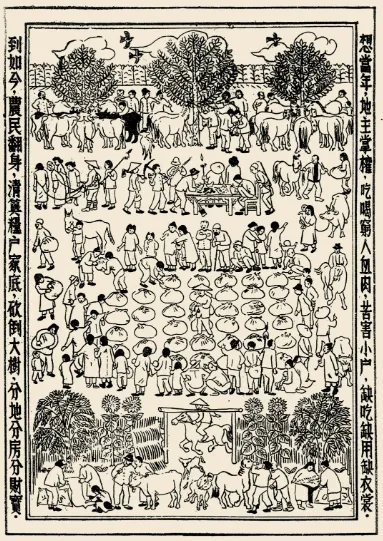 想當年，地主掌權，吃喝窮人血肉，苦害小戶，缺吃缺用缺衣裳。
到如今，農民翻身，清算糧戶家底，砍倒大樹，分地分房分財寶。